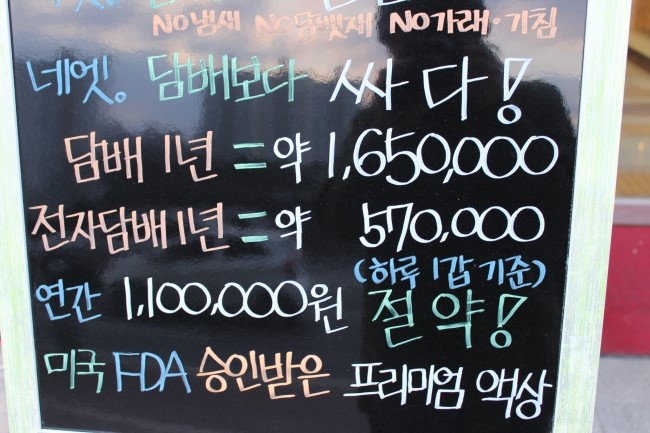 NO냄새 NO담뱃재 NO가래·기침
네엣. 담배보다 싸다!
담배 1년 = 약 1,650,000
전자담배 1년 = 약 570,000
(하루 1갑 기준)
연간 1,100,000원 절약!
미국 FDA 승인받은 프리미엄 액상